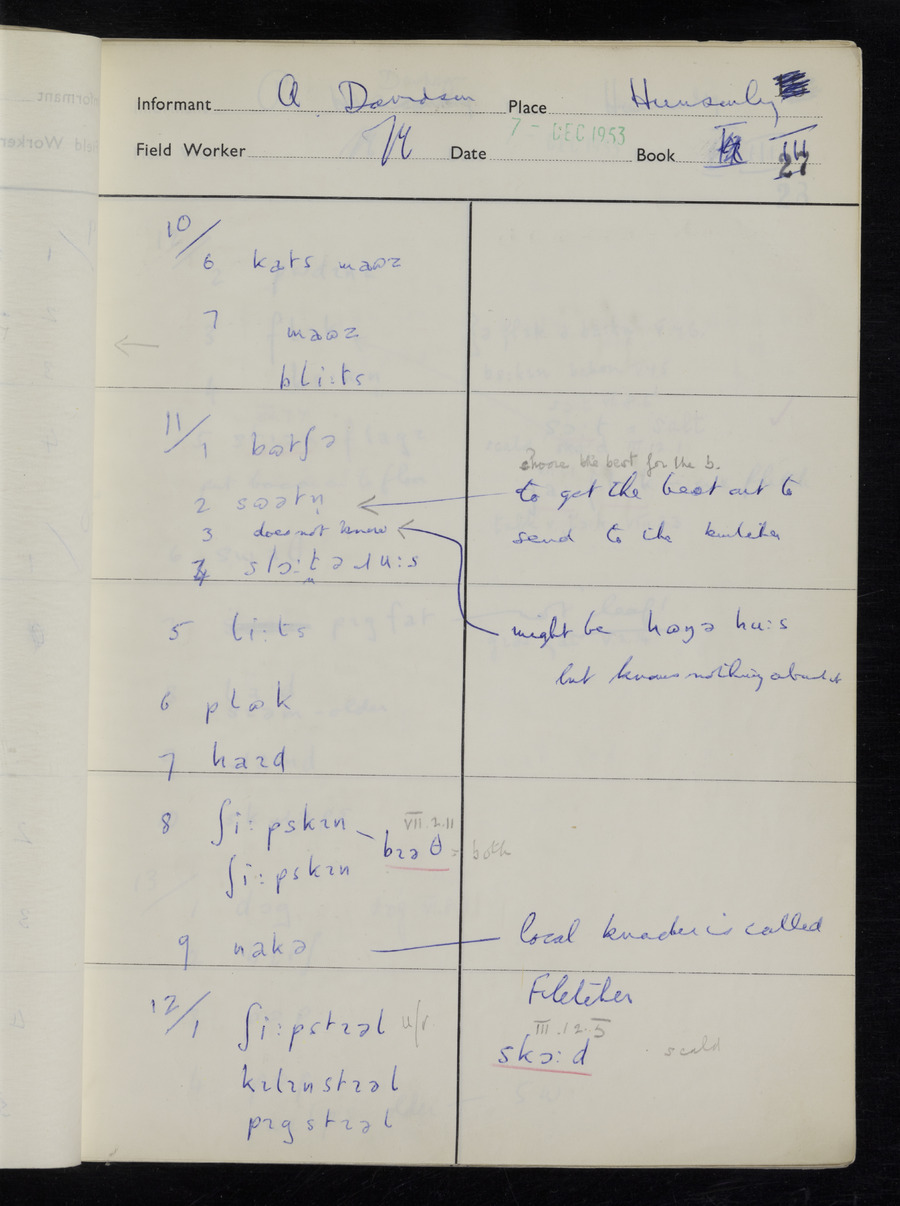 Informant A Davidson Place Hunsonby
Field Worker Date 7 - DEC 1953 Book III
27
10/
6 kats maəz
7 maəz
bli:ts
11/
1 bətʃə
choose the best for the b.
2 sɔətn̩
to get the best out to
3 does not know
send to the butcher
4 slɔ:tər u:s
5 li:ts
might be haŋə hu:s
but knows nothing about it
6 plək
7 hard
8 ʃi:pskɪn
VII.2.11
bɪəθ = both
ʃi:pskɪn
9 nakə
local knacker is called
Fletcher
12/
1 ʃi:pstɪəl u/r.
III.12.5
skɔ:d scald
kɪlɪnstɪəl
pɪgstɪəl